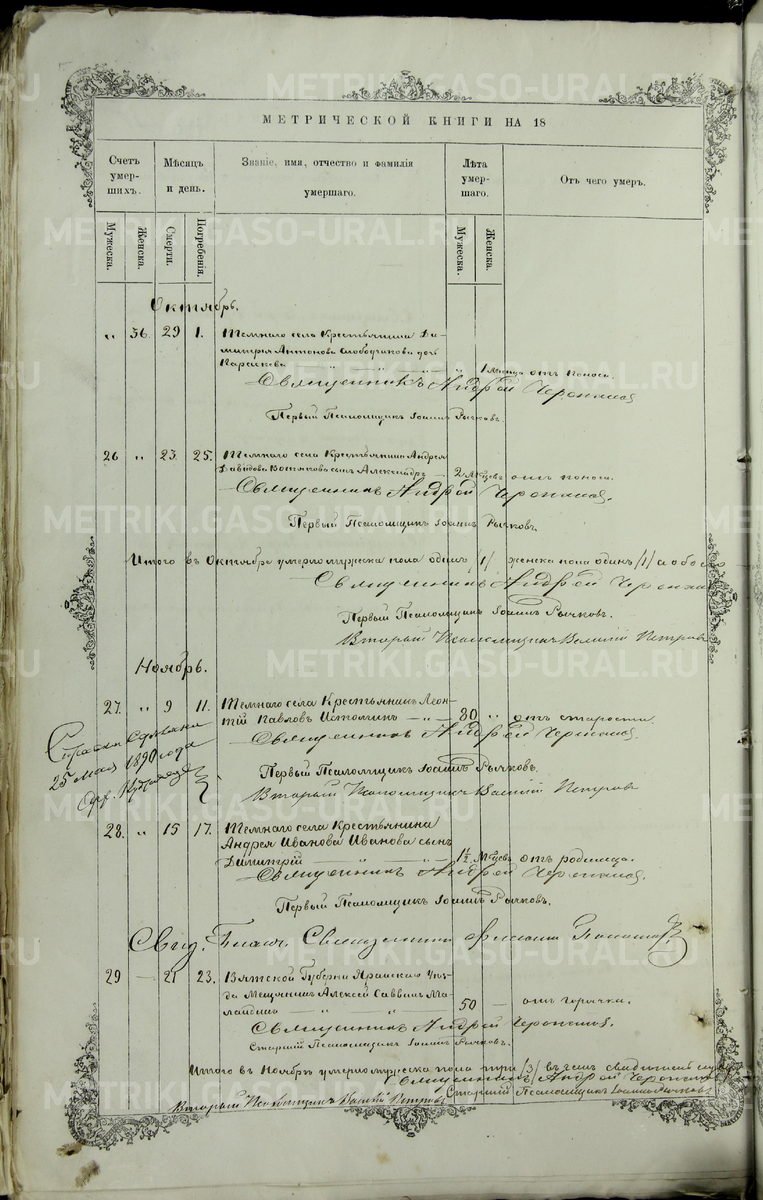 МЕТРИЧЕСКОЙ КНИГИ НА 18
Счетъ умер-шихъ. Мѣсяцъ и день. Званіе, имя, отчество и фамилія умершаго. Лѣта умер-шаго. Отъ чего умеръ.
Мужеска. Женска. Смерти. Погребенія. Мужеска. Женска.
Октябрь.
„ 36. 29 1. Темнаго села Крестьянина Ди-
митрія Антонова Слободчикова дочь
Параскева „ „ 1 мѣсяца отъ поноса.
Священникъ Андрей
Первый Псаломщикъ Іоаннъ Рычковъ.
26 „ 23. 25. Темнаго села Крестьянина Андрея
Давидова сынъ Александръ — 2 мѣсяцевъ отъ поноса.
Священникъ Андрей
Первый Псаломщикъ Іоаннъ Рычковъ.
Итого въ Октябрѣ умерло мужеска пола одинъ /1/ женска пола одинъ /1/ а обое
Священникъ Андрей
Первый Псаломщикъ Іоаннъ Рычковъ.
Вторый Псаломщикъ Василій Петровъ
Ноябрь.
27. „ 9 11. Темнаго села Крестьянинъ Леон-
тій Павловъ Истоминъ — „ — 80 „ отъ старости.
Священникъ Андрей
25 мая 1890 года
Первый Псаломщикъ Іоаннъ Рычковъ.
Вторый Псаломщикъ Василій Петровъ
28. „ 15 17. Темнаго села Крестьянина
Андрея Иванова Иванова сынъ
Димитрій — „ — 1½ Мѣсяцевъ отъ родимца.
Священникъ Андрей
Первый Псаломщикъ Іоаннъ Рычковъ.
Свид. Благ. Священникъ
29 — 21 23. Вятской Губерніи Яранскаго Уѣз-
да Мещанинъ Алексѣй Саввинъ Ма-
50 — отъ горячки.
Священникъ Андрей
Старшій Псаломщикъ Іоаннъ Рычковъ.
Итого въ Ноябрѣ умерло мужеска пола три /3/
Священникъ Андрей
Старшій Псаломщикъ Іоаннъ Рычковъ
Вторый Псаломщикъ Василій Петровъ
METRIKI.GASO-URAL.RU